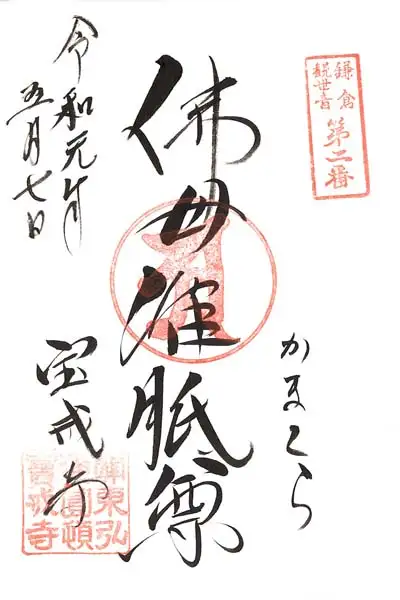 鎌倉
観世音
第二番
かまくら
佛母准胝尊
令和元年
五月七日
宝戒寺
東弘
圓頓
寶戒寺